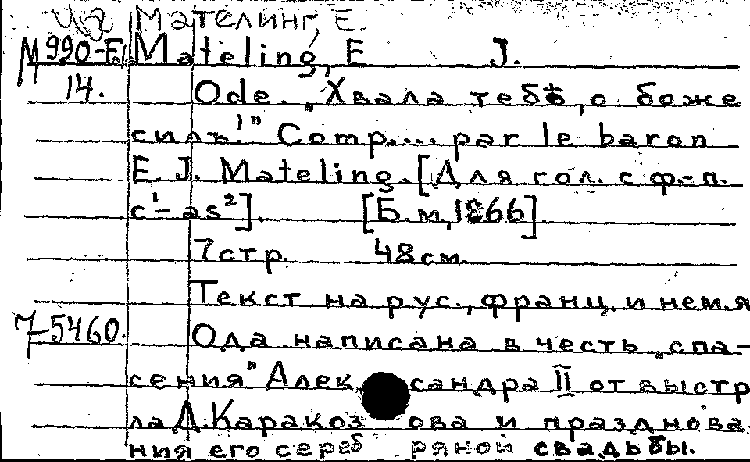 Мателинг, Е.
М 990-Е Mateling, E J.
14. Ode. „Хвала тебѣ, о боже
силъ!" Comp.... par le baron
E. J. Mateling. [Для гол. с ф.-п.
c¹-as²]. [Б.м, 1866].
7 стр. 48 см.
Текст на рус., франц. и нем.я
7-5460. Ода написана в честь „спа-
сения" Александра II от выстр
ла Д. Каракозова и празднова
ния его серебряной свадьбы.